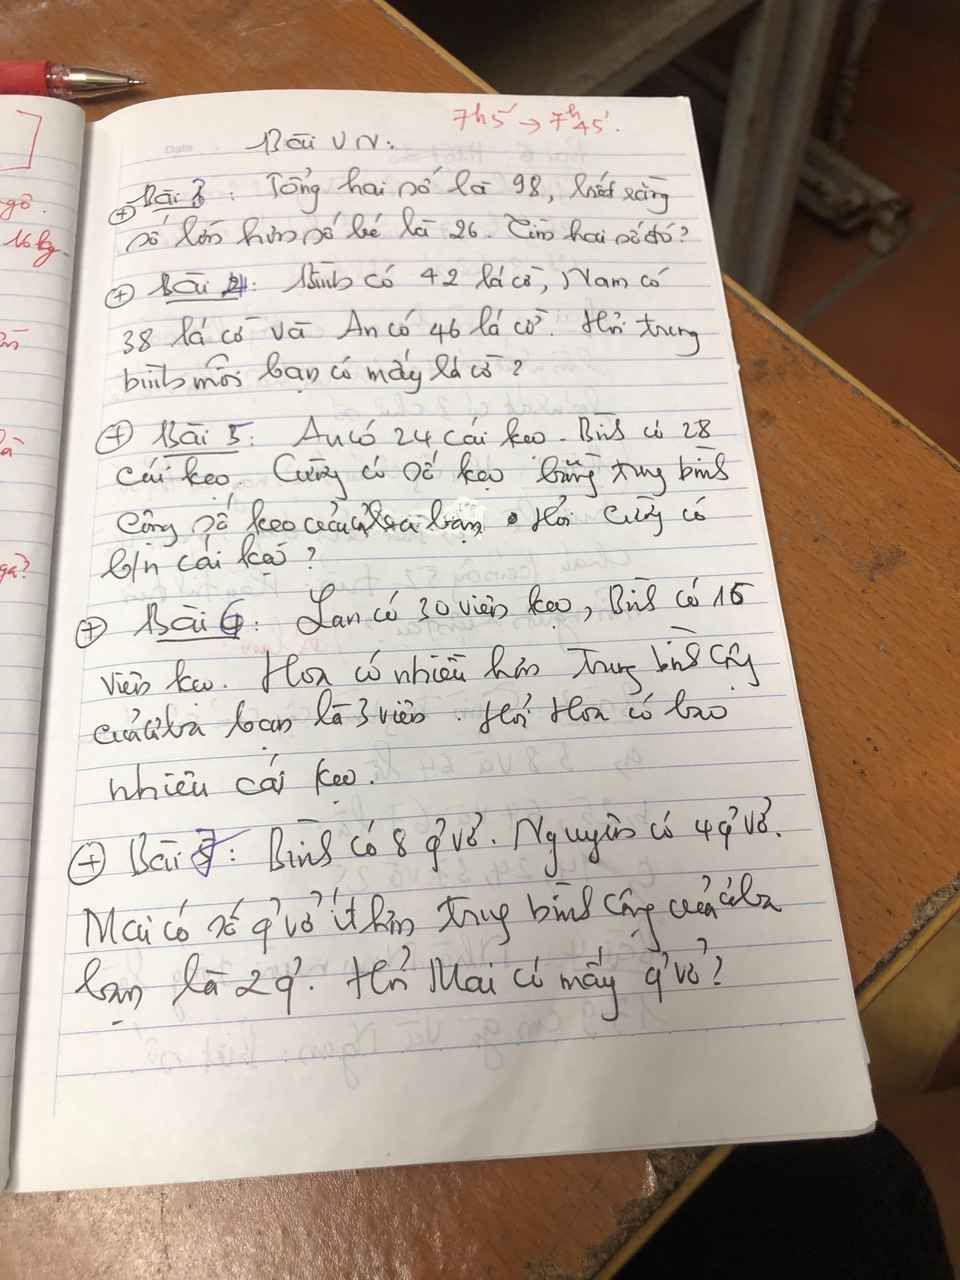 7h5' → 7h45'.
Bài VN:
gô.
16kg.
+ Bài 3: Tổng hai số là 98, biết rằng
số lớn hơn số bé là 26. Tìm hai số đó?
+ Bài 4: Bình có 42 lá cờ, Nam có
38 lá cờ và An có 46 lá cờ. Hỏi trung
bình mỗi bạn có mấy lá cờ?
+ Bài 5: An có 24 cái kẹo. Bình có 28
cái kẹo. Cường có số kẹo bằng trung bình
cộng số kẹo của cả ba bạn. Hỏi Cường có
b/n cái kẹo?
gà?
+ Bài 6: Lan có 30 viên kẹo, Bình có 15
viên kẹo. Hoa có nhiều hơn trung bình cộng
của cả ba bạn là 3 viên. Hỏi Hoa có bao
nhiêu cái kẹo.
+ Bài 7: Bình có 8 q' vở. Nguyên có 4 q' vở.
Mai có số q' vở ít hơn trung bình cộng của cả ba
bạn là 2 q'. Hỏi Mai có mấy q' vở?